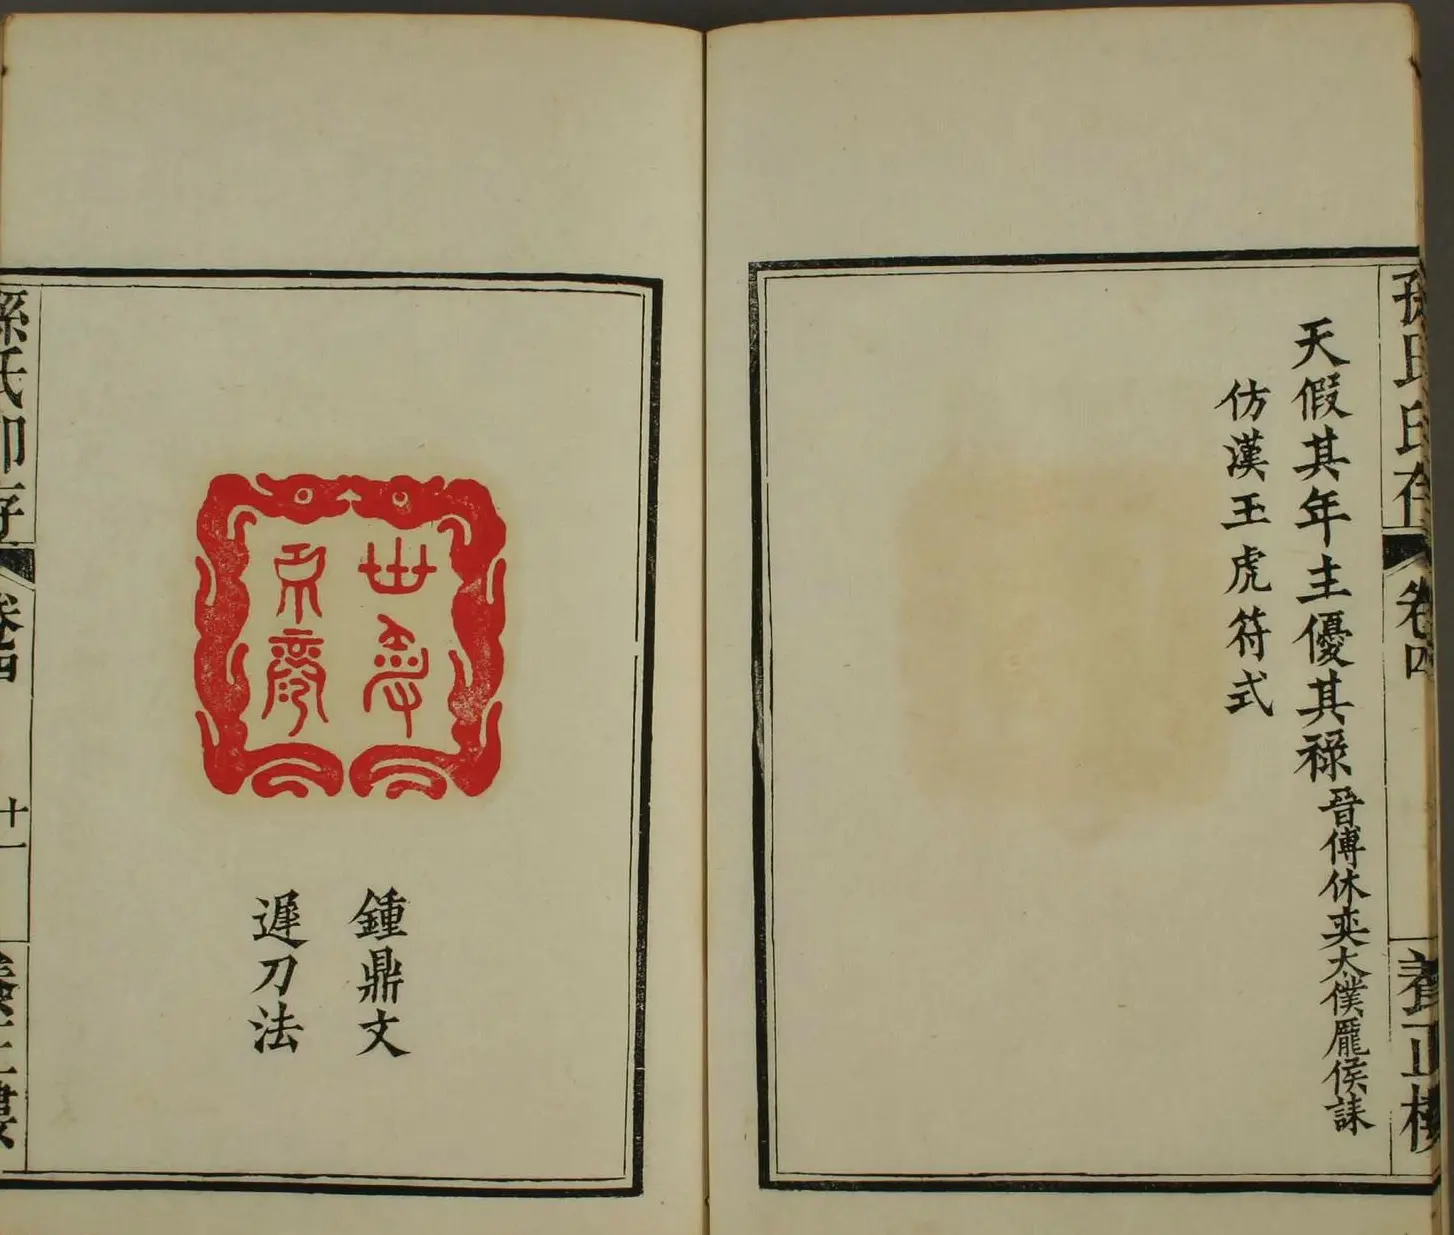 孫氏印存
卷四
養正樓
天假其年主優其祿晉傅休奕太僕龐侯誄
仿漢玉虎符式
鍾鼎文
遲刀法
孫氏印存
卷四
十一
養正樓